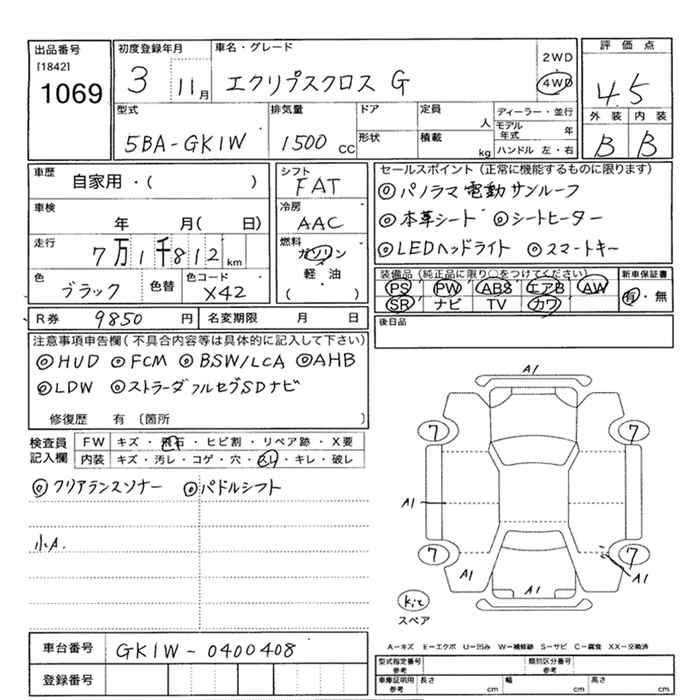 出品番号 初度登録年月 車名・グレード 評価点
[1842]
1069 3 11月 エクリプスクロス G 2WD 4WD 4.5
外装 内装
B B
型式 排気量 ドア 定員 人 ディーラー・並行
モデル年式 年
5BA-GK1W 1500cc 形状 積載 kg ハンドル 左・右
車歴 自家用・( ) シフト FAT
セールスポイント(正常に機能するものに限ります)
◎パノラマ電動サンルーフ
車検 年 月( 日) 冷房 AAC
◎本革シート ◎シートヒーター
走行 7万1千812km 燃料 ガソリン
軽・油
( ・ )
◎LEDヘッドライト ◎スマートキー
色 ブラック 色替 色コード X42
装備品(純正品に限り○をつけてください) 新車保証書
PS PW ABS エアB AW 有・無
SR ナビ TV カワ
R券 9850円 名変期限 月 日
後日品
注意事項申告欄(不具合内容等は具体的に記入して下さい)
◎HUD ◎FCM ◎BSW/LCA ◎AHB
◎LDW ◎ストラーダフルセグSDナビ
修復歴 有〔箇所 〕
検査員記入欄 FW キズ・飛石・ヒビ割・リペア跡・X要
内装 キズ・汚レ・コゲ・穴・スレ・キレ・破レ
◎クリアランスソナー ◎パドルシフト
小A.
A1
7 7
A1
7 7
A1 A1 A1
kit
スペア
車台番号 GK1W-0400408
登録番号
A-キズ E-エクボ U-凹み W-補修跡 S-サビ C-腐食 XX-交換済
型式指定番号 参考 類別区分番号 参考
車庫証明用 参考 長さ cm 幅 cm 高さ cm